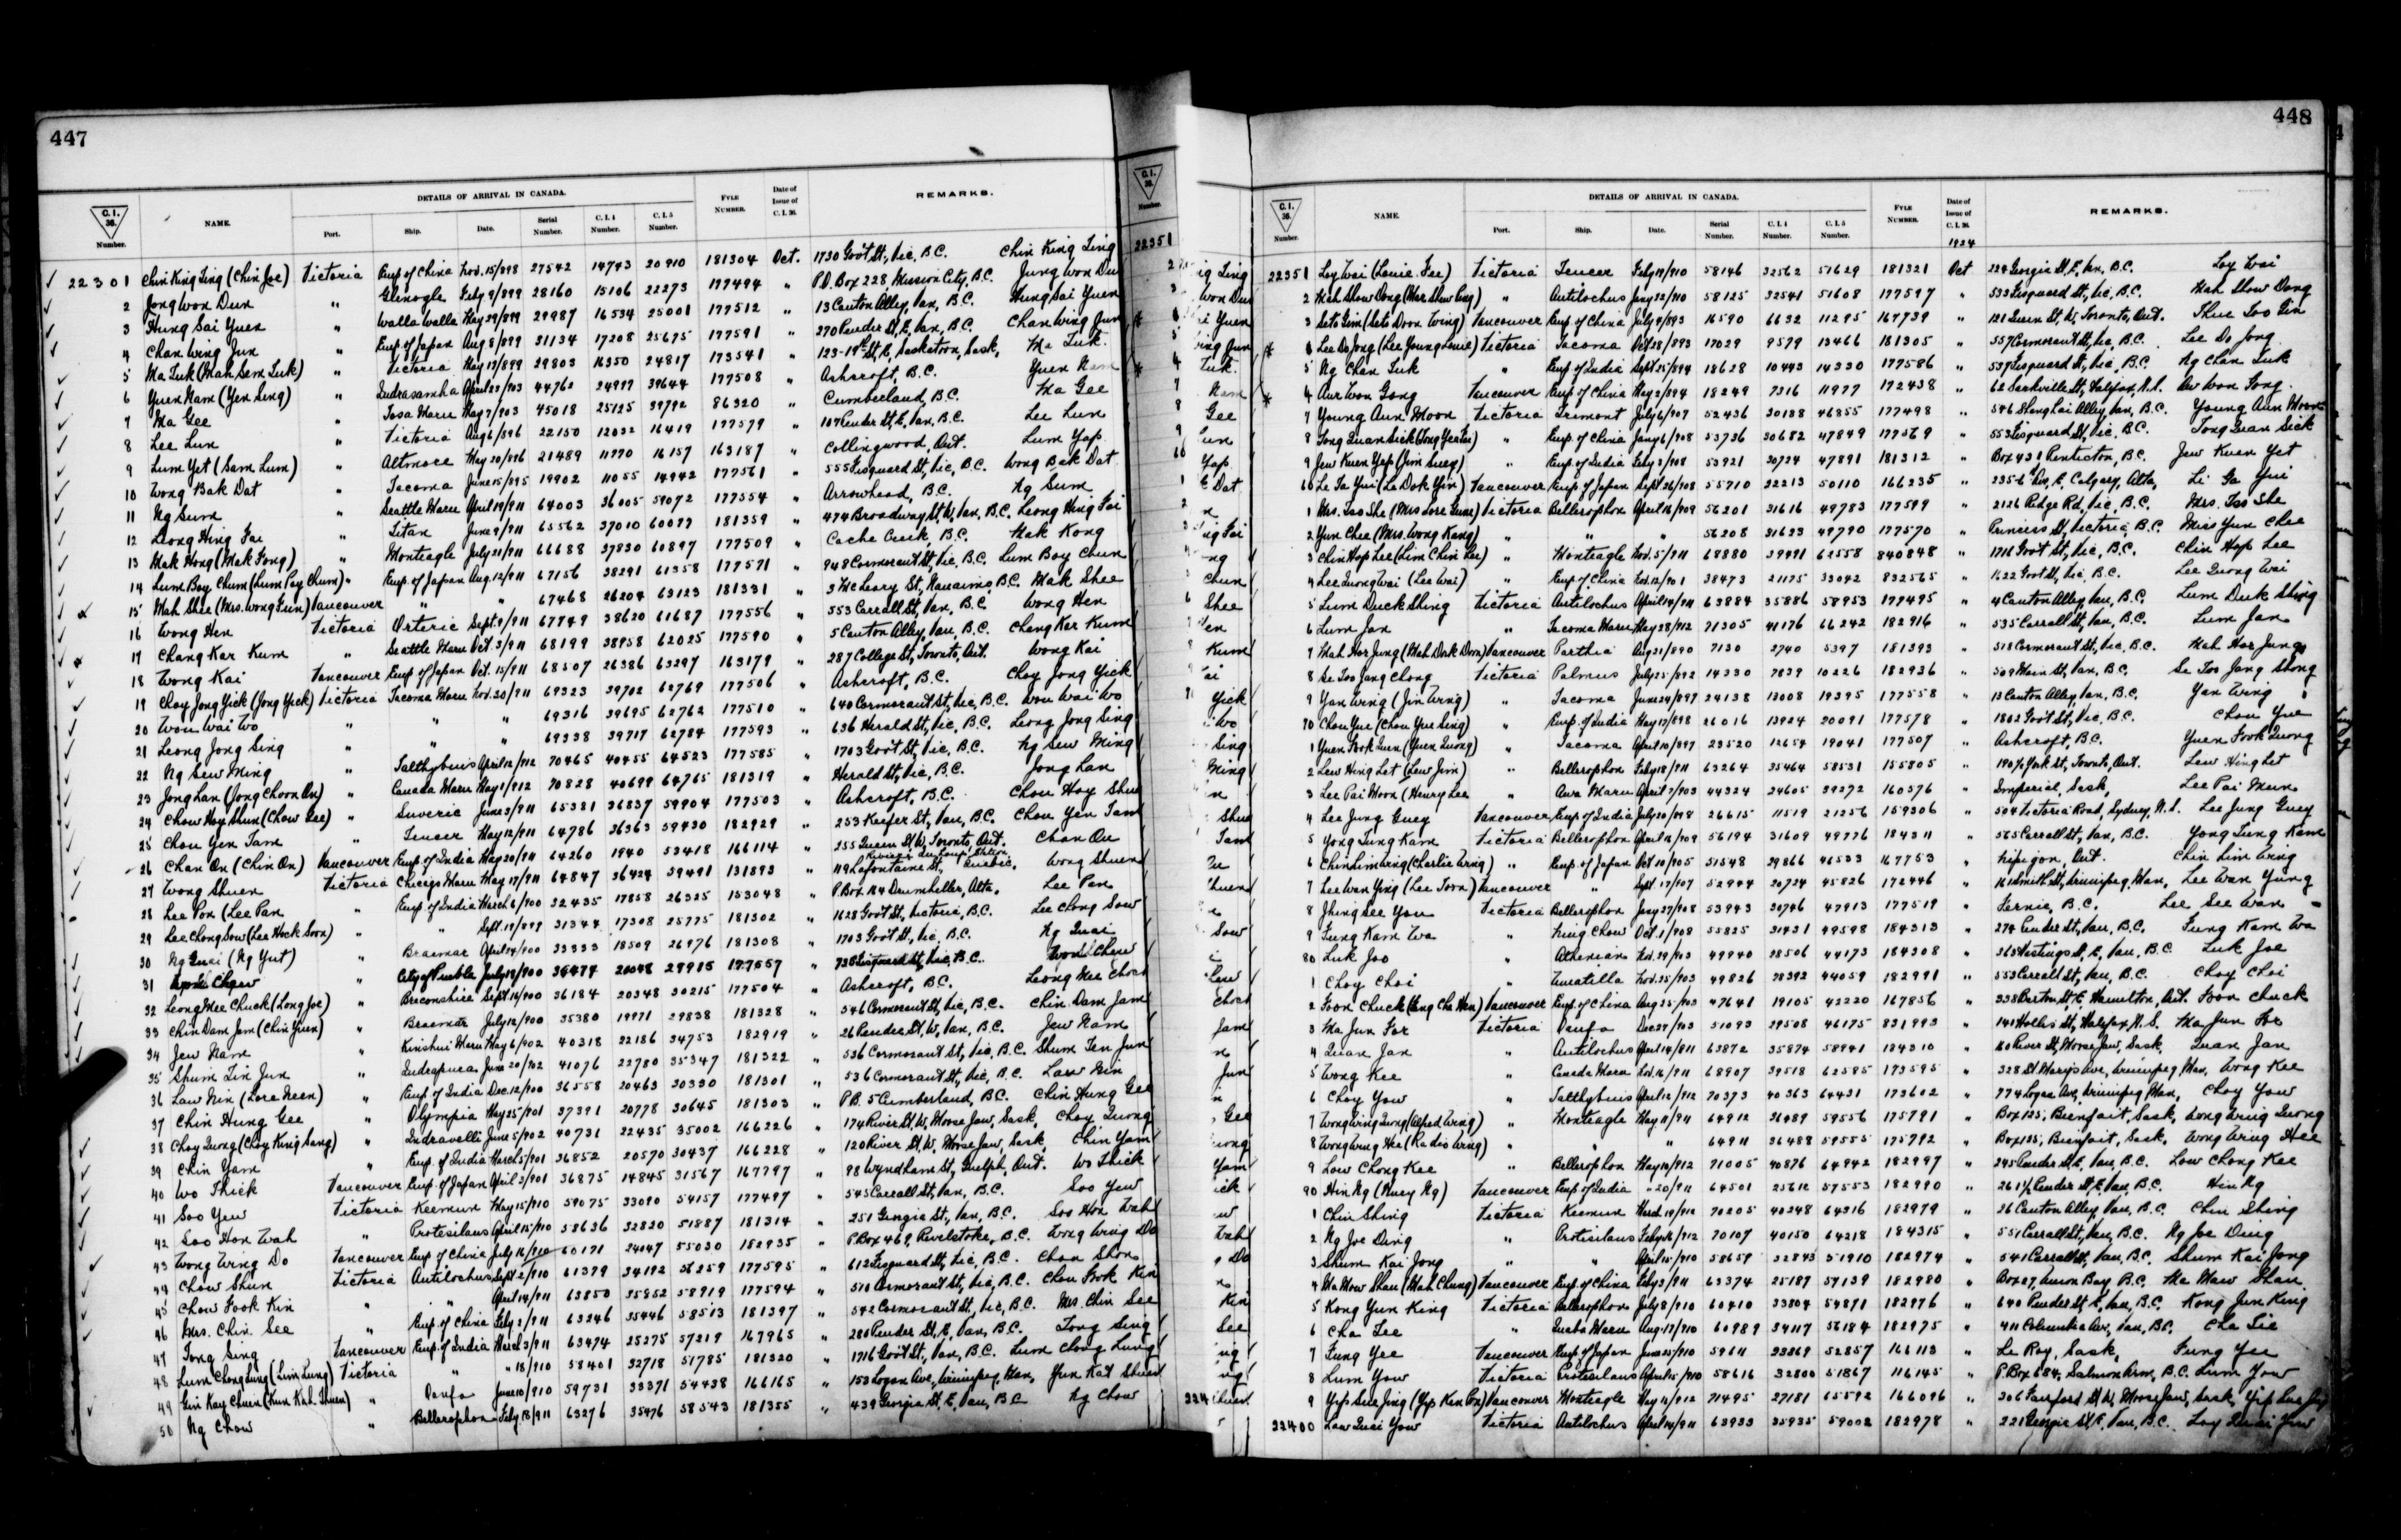 447
DETAILS OF ARRIVAL IN CANADA.
C. I. 36. Number. NAME. Port. Ship. Date. Serial Number. C. I. 4 Number. C. I. 5 Number. FYLE NUMBER. Date of Issue of C. I. 36. REMARKS.
22301 Chin King Ling (Chin Joe) Victoria Emp of China Nov. 15/898 27542 14743 20910 181304 Oct. 1730 Gov't St, Vic, B.C. Chin King Ling
2 Jong Won Dun " Glenogle Feby 9/899 28160 15106 22273 177494 " P.O. Box 228, Mission City, B.C. Jung Won Du
3 Hung Sai Yuen " Walla Walla May 29/899 29987 16534 25001 177512 " 13 Canton Alley, Van, B.C. Hung Sai Yuen
4 Chan Wing Jun " Emp. of Japan Aug 8/899 31134 17208 25675 177591 " 270 Pender St, E, Van, B.C. Chan Wing Jun
5 Ma Tuk (Mah Sem Tuk) " Victoria May 13/899 29803 16350 24817 173541 " 123-19th St, E, Saskatoon, Sask, Ma Tuk
6 Yuen Nam (Yen Sing) " Indrasamha April 23/903 44762 24997 39644 177508 " Ashcroft, B.C. Yuen Nam
7 Ma Gee " Tosa Maru May 7/903 45018 25125 39792 86320 " Cumberland, B.C. Ma Gee
8 Lee Lun " Victoria Aug 6/896 22150 12032 16419 177579 " 107 Pender St, E, Van, B.C. Lee Lun
9 Lum Yet (Sam Lum) " Altmore May 20/896 21489 11770 16157 163187 " Collingwood, Ont. Lum Yap
10 Wong Bak Dat " Tacoma June 15/895 19902 11055 14942 177561 " 555 Fisguard St, Vic, B.C. Wong Bak Dat
11 Ng Sum " Seattle Maru April 19/911 64003 36005 59072 177554 " Arrowhead, B.C. Ng Sum
12 Leong Hing Fai " Titan June 9/911 65562 37010 60077 181359 " 474 Broadway St, W, Van, B.C. Leong Hing Fai
13 Mak Hong (Mak Gong) " Monteagle July 21/911 66688 37830 60897 177509 " Cache Creek, B.C. Mak Kong
14 Lum Boy Chun (Lum Pay Chum) " Emp. of Japan Aug. 12/911 67156 38291 61358 177571 " 948 Cormorant St, Vic, B.C. Lum Boy Chun
15 Mah Shee (Mrs. Wong Gun) Vancouver " " 67468 26204 63123 181331 " 3 McLeary St, Nanaimo, B.C. Mak Shee
16 Wong Hen Victoria Orteric Sept. 9/911 67749 38620 61687 177556 " 553 Carrall St, Van, B.C. Wong Hen
17 Chang Kar Kum " Seattle Maru Oct. 3/911 68199 38958 62025 177590 " 5 Canton Alley, Van, B.C. Chang Kar Kum
18 Wong Kai Vancouver Emp. of Japan Oct. 15/911 68507 26386 63297 163179 " 287 College St, Toronto, Ont. Wong Kai
19 Choy Jong Yick (Jong Yick) Victoria Tacoma Maru Nov. 30/911 69323 39702 62769 177506 " Ashcroft, B.C. Choy Jong Yick
20 Won Wai Wo " " " 69316 39695 62762 177510 " 640 Cormorant St, Vic, B.C. Won Wai Wo
21 Leong Jong Sing " " " 69338 39717 62784 177593 " 636 Herald St, Vic, B.C. Leong Jong Sing
22 Ng Sew Ming " Talthybius April 12/912 70465 40455 64523 177585 " 1703 Gov't St, Vic, B.C. Ng Sew Ming
23 Jong Lan (Jong Choon On) " Canada Maru May 1/912 70828 40699 64765 181319 " Herald St, Vic, B.C. Jong Lan
24 Chow Hoy Shun (Chow Gee) " Suveric June 3/911 65321 36837 59904 177503 " Ashcroft, B.C. Chou Hoy Shun
25 Chou Yen Tam " Teucer May 12/911 64786 36363 59430 182929 " 253 Keefer St, Van, B.C. Chou Yen Tam
26 Chan On (Chin On) Vancouver Emp. of India May 20/911 64260 1940 53418 166114 " 255 Queen St, W, Toronto, Ont. Chan On
27 Wong Shuen Victoria Chicago Maru May 17/911 64847 36424 59491 131893 " 119 Lafontaine St, Quebec, Wong Shuen
28 Lee Pon (Lee Pan " Emp. of India March 8/900 32435 17858 26325 153048 " P.Box 184 Drumheller, Alta. Lee Pan
29 Lee Chong Sow (Lee Hock Soon) " " Sept. 19/899 31344 17308 25775 181302 " 1628 Gov't St, Victoria, B.C. Lee Chong Sow
30 Ng Guai (Ng Yut) " Braemar April 24/900 33333 18509 26976 181308 " 1703 Gov't St, Vic, B.C. Ng Guai
31 Chow " City of Puebla July 18/900 177557 " Fisguard St, Vic, B.C. Won Chow
32 Leong Mee Chuck (Long Joe) " Breconshire Sept. 14/900 36184 20348 30215 177504 " Ashcroft, B.C. Leong Mee Chock
33 Chin Dam Jam (Chin Yuen) " Braemar July 12/900 35380 19971 29838 181328 " 546 Cormorant St, Vic, B.C. Chin Dam Jam
34 Jew Nam " Kinshui Maru May 6/902 40318 22186 34753 182919 " 26 Pender St, W, Van, B.C. Jew Nam
35 Shum Tin Jun " Indrapura June 20/902 41076 22780 35347 181322 " 536 Cormorant St, Vic, B.C. Shum Ten Jun
36 Law Nin (Lore Neen) " Emp. of India Dec. 12/900 36558 20463 30330 181301 " 536 Cormorant St, Vic, B.C. Law Nin
37 Chin Hung Gee " Olympia May 25/901 37391 20778 30645 181303 " P.B. 5 Cumberland, B.C. Chin Hung Gee
38 Choy Quong (Choy King Sang) " Indravelli June 5/902 40731 22435 35002 166226 " 174 River St, W, Moose Jaw, Sask, Choy Quong
39 Chin Yam " Emp. of India March 5/901 36852 20570 30437 166228 " 120 River St, W, Moose Jaw, Sask Chin Yam
40 Wo Thick Vancouver Emp. of Japan April 2/901 36875 14845 31567 167797 " 98 Wyndham St, Guelph, Ont. Wo Thick
41 Soo Yew Victoria Keemun May 15/910 59075 33090 54157 177497 " 545 Carrall St, Van, B.C. Soo Yew
42 Soo Hon Wah " Protesilaus April 15/910 58636 32820 51887 181314 " 251 Georgia St, Van, B.C. Soo Hon Wah
43 Wong Wing Do Vancouver Emp of China July 16/910 60171 24047 55030 182935 " P.Box 469, Revelstoke, B.C. Wong Wing Do
44 Chow Shun Victoria Antilochus Sept. 2/910 61379 34192 56259 177595 " 612 Fisguard St, Vic, B.C. Chow Shon
45 Chow Fook Kin " " April 14/911 63850 35852 58919 177594 " 510 Cormorant St, Vic, B.C. Chou Fook Kin
46 Mrs. Chin See " Emp. of China Feby 2/911 63246 35446 58513 181397 " 542 Cormorant St, Vic, B.C. Mrs. Chin See
47 Tong Sing Vancouver Emp. of India March 3/911 63474 25275 57219 167965 " 280 Pender St, E, Van, B.C. Tong Sing
48 Lum Chong Lung (Lim Lung) Victoria " " 18/910 58401 32718 51785 181320 " 1716 Gov't St, Van, B.C. Lum Chong Lung
49 Gin Kay Chuen (Kun Kat Shuen) " Oanfa June 10/910 59731 33371 54438 166165 " 153 Logan Ave, Winnipeg, Man, Yun Kat Shuen
50 Ng Chow " Bellerophon Feby 18/911 63276 35476 58543 181355 " 439 Georgia St, E, Van, B.C Ng Chow
448
DETAILS OF ARRIVAL IN CANADA.
C. I. 36. Number. NAME. Port. Ship. Date. Serial Number. C. I. 4 Number. C. I. 5 Number. FYLE NUMBER. Date of Issue of C. I. 36. REMARKS.
1924
22351 Loy Wai (Louie Fee) Victoria Teucer Feby 19/910 58146 32562 51629 181321 Oct 224 Georgia St, E, Van, B.C. Loy Wai
2 Mah Show Dong (Mar Shew Cong) " Antilochus Jany 22/910 58125 32541 51608 177597 " 533 Fisguard St, Vic, B.C. Mah Show Dong
3 Seto Gim (Seto Doon Wing) Vancouver Emp. of China July 9/893 16590 6632 11295 164739 " 121 Queen St, W, Toronto, Ont.
4 Lee Do Jong (Lee Young Louie) Victoria Tacoma Oct 28/893 17029 9579 13466 181305 " 557 Cormorant St, Vic, B.C. Lee Do Jong
5 Ng Chan Tuk " Emp. of India Sept. 25/894 18628 10443 14330 177586 " 537 Fisguard St, Vic, B.C. Ng Chan Tuk
6 Aur Won Gong Vancouver Emp. of China May 2/894 18249 7316 11977 172438 " 62 Sackville St, Halifax, N.S. Av Won Gong
7 Young Aun Moon Victoria Tremont July 6/907 52436 30188 46855 177498 " 546 Shanghai Alley, Van, B.C. Young Aun Moon
8 Tong Quan Sick (Tong Yea Fai) " Emp. of China Jany 6/908 53736 30682 47849 177569 " 553 Fisguard St, Vic, B.C. Tong Quan Sick
9 Jew Kuen Yep (Jim Sueg) " Emp. of India Feby 3/908 53921 30724 47891 181312 " Box 431 Penticton, B.C. Jew Kuen Yet
60 Le Ga Yui (Le Dok Yin) Vancouver Emp of Japan Sept 26/908 55710 22213 50110 166235 " 235-6 Av, E, Calgary, Alta, Li Ga Yui
1 Mrs. Tao She (Mrs Lore Gune) Victoria Bellerophon April 16/909 56201 31616 49783 177599 " 2126 Ridge Rd, Vic, B.C. Mrs. Tas She
2 Yun Chee (Mrs. Wong Kang) " " " 56208 31623 49790 177570 " Princess St, Victoria, B.C. Miss Yun Chee
3 Chin Hop Lee (Lim Chin Lee) " Monteagle Nov. 5/911 68880 39491 62558 840848 " 1716 Gov't St, Vic, B.C. Chin Hop Lee
4 Lee Quong Wai (Lee Wai) " Emp. of China Nov. 12/901 38473 21175 33042 832565 " 1622 Gov't St, Vic, B.C. Lee Quong Wai
5 Lum Duck Shing Victoria Antilochus April 14/911 63884 35886 58953 177495 " 4 Canton Alley, Van, B.C. Lum Duk Shing
6 Lum Jan " Tacoma Maru May 28/912 71305 41176 66242 182916 " 535 Carrall St, Van, B.C. Lum Jan
7 Mah Hor Jung (Mah Dork Doon) Vancouver Parthia Aug 21/890 7130 2740 5397 181393 " 518 Cormorant St, Vic, B.C. Mah Hor Jung
8 Se Too Jang Chong Victoria Palmus July 25/892 14330 7839 10226 182936 " 509 Main St, Van, B.C. Se Too Jang Shong
9 Yan Wing (Jin Wing) " Tacoma June 24/897 24138 13008 19395 177558 " 13 Canton Alley, Van, B.C. Yan Wing
70 Chou Yue (Chou Yue Sing) " Emp. of India May 17/898 26016 13924 20091 177578 " 1802 Gov't St, Vic, B.C. Chou Yue
1 Yuen Fook Quon (Yuen Quong) " Tacoma April 10/897 23520 12654 19041 177507 " Ashcroft, B.C. Yuen Fook Quong
2 Lew Hing Let (Lew Jim) " Bellerophon Feby 18/911 63264 35464 58531 155805 " 190½ York St, Toronto, Ont. Lew Hing Let
3 Lee Pai Moon (Henry Lee " Awa Maru April 7/903 44324 24605 39272 160576 " Imperial, Sask, Lee Pai Mun
4 Lee Jung Guey Vancouver Emp of India July 20/898 26615 11519 21256 159306 " 504 Victoria Road, Sydney, N.S. Lee Jung Guey
5 Yong Tung Kam Victoria Bellerophon April 16/909 56194 31609 49776 184311 " 565 Carrall St, Van, B.C. Yong Tung Kam
6 Chin Lim Wing (Charlie Wing) " Emp. of Japan Oct 10/905 51548 29866 46533 167753 " Nipigon, Ont. Chin Lim Wing
7 Lee Wan Ying (Lee Toon) Vancouver " Sept. 17/907 52944 20724 45826 172446 " 161 Smith St, Winnipeg, Man, Lee Wan Yung
8 Jhing See You Victoria Bellerophon Jany 27/908 53943 30746 47913 177519 " Fernie, B.C. Lee See Wan
9 Fung Kam Wa " Ning Chow Oct. 1/908 55825 31431 49598 184313 " 274 Pender St, Van, B.C. Fung Kam Wa
80 Luk Joo " Athenian Nov. 29/903 49940 28506 44173 184308 " 363 Hastings St, E, Van, B.C. Luk Joe
1 Choy Choi " Umatilla Nov. 25/903 49826 28392 44059 182991 " 553 Carrall St, Van, B.C. Choy Choi
2 Foon Chuck (Cang Cha Hen) Vancouver Emp. of China Aug 25/903 47641 19105 42220 167856 " 338 Barton St, E, Hamilton, Ont. Foon Chuck
3 Ma Jun For Victoria Oanfa Dec 27/903 51093 29508 46175 831993 " 143 Hollis St, Halifax, N.S. Ma Jun For
4 Quan Jan " Antilochus April 14/911 63872 35874 58941 184310 " 110 River St, Moose Jaw, Sask, Quan Jan
5 Wong Kee " Canada Maru Nov. 16/911 68907 39518 62585 173595 " 328 St. Mary's Ave, Winnipeg, Man, Wong Kee
6 Choy Yow " Talthybius April 12/912 70373 40363 64431 173602 " 774 Logan Ave, Winnipeg, Man, Choy Yow
7 Wong Wing Quong (Alfred Wing) " Monteagle May 11/911 64912 36489 59556 175791 " Box 125, Bienfait, Sask, Wong Wing Quong
8 Wong Wing Hee (Radio Wing) " " " 64911 36488 59555 175792 " Box 125, Bienfait, Sask, Wong Wing Hee
9 Low Chong Kee " Bellerophon May 10/912 71005 40876 64942 182997 " 245 Pender St, E, Van, B.C. Low Chong Kee
90 Hin Ng (Nuey Ng) Vancouver Emp. of India " 20/911 64501 25612 57553 182990 " 261½ Pender St, E, Van, B.C. Hin Ng
1 Chin Shing Victoria Keemun March 19/912 70205 40248 64316 182979 " 26 Canton Alley, Van, B.C. Chin Shing
2 Ng Joe Ding " Protesilaus Feby 26/912 70107 40150 64218 184315 " 551 Carrall St, Van, B.C. Ng Joe Ding
3 Shum Kai Jong " " April 15/910 58659 32843 51910 182974 " 541 Carrall St, Van, B.C. Shum Kai Jong
4 Ma Mow Shau (Mah Chung) Vancouver Emp of China Feby 3/911 63374 25187 57139 182980 " Box 27, Union Bay, B.C. Ma Maw Shau
5 Kong Yun King Victoria Bellerophon July 8/910 60410 33804 54871 182976 " 640 Pender St, E, Van, B.C. Kong Jun King
6 Cha Tee " Inaba Maru Aug. 17/910 60989 34117 56184 182975 " 411 Columbia Av, Van, B.C. Cha Tie
7 Fung Yee Vancouver Emp of Japan June 25/910 59611 23269 52857 166113 " Le Roy, Sask, Fung Yee
8 Lum Yow Victoria Protesilaus April 15/910 58616 32800 51867 116145 " P.Box 684, Salmon Arm, B.C. Lum Yow
9 Yip Sue Jing (Yip Ken Pon) Vancouver Monteagle May 11/912 71495 27181 65592 166096 " 306 Fairford St, W, Moose Jaw, Sask,
22400 Law Quai Yow Victoria Antilochus April 14/911 63933 35935 59002 182978 " 221 Georgia St, E, Van, B.C. Loy Quai Yow